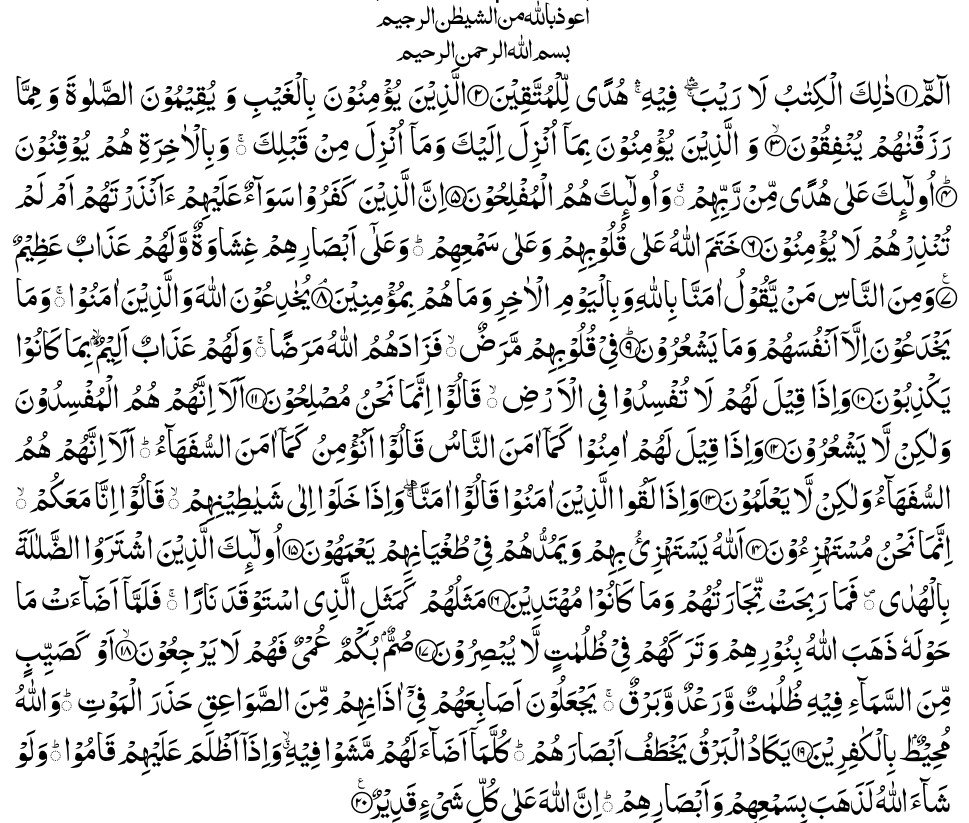 اعوذ بالله من الشیطٰن الرجیم
بسم الله الرحمن الرحیم
الٓمّٓ ۝۱ ذٰلِكَ الْكِتٰبُ لَا رَیْبَ ۛۖۚ فِیْهِ ۛۚ هُدًی لِّلْمُتَّقِیْنَ ۝۲ الَّذِیْنَ یُؤْمِنُوْنَ بِالْغَیْبِ وَ یُقِیْمُوْنَ الصَّلٰوةَ وَ مِمَّا
رَزَقْنٰهُمْ یُنْفِقُوْنَ ۝۳ۙ وَ الَّذِیْنَ یُؤْمِنُوْنَ بِمَاۤ اُنْزِلَ اِلَیْكَ وَمَاۤ اُنْزِلَ مِنْ قَبْلِكَ ۚ وَبِالْاٰخِرَةِ هُمْ یُوْقِنُوْنَ
۝۴ؕ اُولٰٓىِٕكَ عَلٰی هُدًی مِّنْ رَّبِّهِمْ ۗ وَاُولٰٓىِٕكَ هُمُ الْمُفْلِحُوْنَ ۝۵ اِنَّ الَّذِیْنَ كَفَرُوْا سَوَآءٌ عَلَیْهِمْ ءَاَنْذَرْتَهُمْ اَمْ لَمْ
تُنْذِرْهُمْ لَا یُؤْمِنُوْنَ ۝۶ خَتَمَ اللّٰهُ عَلٰی قُلُوْبِهِمْ وَعَلٰی سَمْعِهِمْ ؕ وَعَلٰۤی اَبْصَارِهِمْ غِشَاوَةٌ وَّلَهُمْ عَذَابٌ عَظِیْمٌ
۝۷۠ وَمِنَ النَّاسِ مَنْ یَّقُوْلُ اٰمَنَّا بِاللّٰهِ وَبِالْیَوْمِ الْاٰخِرِ وَمَا هُمْ بِمُؤْمِنِیْنَ ۝۸ۘ یُخٰدِعُوْنَ اللّٰهَ وَالَّذِیْنَ اٰمَنُوْا ۚ وَمَا
یَخْدَعُوْنَ اِلَّاۤ اَنْفُسَهُمْ وَمَا یَشْعُرُوْنَ ۝۹ؕ فِیْ قُلُوْبِهِمْ مَّرَضٌ ۙ فَزَادَهُمُ اللّٰهُ مَرَضًا ۚ وَلَهُمْ عَذَابٌ اَلِیْمٌۢ ۙ۬ بِمَا كَانُوْا
یَكْذِبُوْنَ ۝۱۰ وَاِذَا قِیْلَ لَهُمْ لَا تُفْسِدُوْا فِی الْاَرْضِ ۙ قَالُوْۤا اِنَّمَا نَحْنُ مُصْلِحُوْنَ ۝۱۱ اَلَاۤ اِنَّهُمْ هُمُ الْمُفْسِدُوْنَ
وَلٰكِنْ لَّا یَشْعُرُوْنَ ۝۱۲ وَاِذَا قِیْلَ لَهُمْ اٰمِنُوْا كَمَاۤ اٰمَنَ النَّاسُ قَالُوْۤا اَنُؤْمِنُ كَمَاۤ اٰمَنَ السُّفَهَآءُ ؕ اَلَاۤ اِنَّهُمْ هُمُ
السُّفَهَآءُ وَلٰكِنْ لَّا یَعْلَمُوْنَ ۝۱۳ وَاِذَا لَقُوا الَّذِیْنَ اٰمَنُوْا قَالُوْۤا اٰمَنَّا ۖۚ وَاِذَا خَلَوْا اِلٰی شَیٰطِیْنِهِمْ ۙ قَالُوْۤا اِنَّا مَعَكُمْ ۙ
اِنَّمَا نَحْنُ مُسْتَهْزِءُوْنَ ۝۱۴ اَللّٰهُ یَسْتَهْزِئُ بِهِمْ وَیَمُدُّهُمْ فِیْ طُغْیَانِهِمْ یَعْمَهُوْنَ ۝۱۵ اُولٰٓىِٕكَ الَّذِیْنَ اشْتَرَوُا الضَّلٰلَةَ
بِالْهُدٰی ۪ فَمَا رَبِحَتْ تِّجَارَتُهُمْ وَمَا كَانُوْا مُهْتَدِیْنَ ۝۱۶ مَثَلُهُمْ كَمَثَلِ الَّذِی اسْتَوْقَدَ نَارًا ۚ فَلَمَّاۤ اَضَآءَتْ مَا
حَوْلَهٗ ذَهَبَ اللّٰهُ بِنُوْرِهِمْ وَتَرَكَهُمْ فِیْ ظُلُمٰتٍ لَّا یُبْصِرُوْنَ ۝۱۷ صُمٌّۢ بُكْمٌ عُمْیٌ فَهُمْ لَا یَرْجِعُوْنَ ۝۱۸ۙ اَوْ كَصَیِّبٍ
مِّنَ السَّمَآءِ فِیْهِ ظُلُمٰتٌ وَّرَعْدٌ وَّبَرْقٌ ۚ یَجْعَلُوْنَ اَصَابِعَهُمْ فِیْۤ اٰذَانِهِمْ مِّنَ الصَّوَاعِقِ حَذَرَ الْمَوْتِ ؕ وَاللّٰهُ
مُحِیْطٌۢ بِالْكٰفِرِیْنَ ۝۱۹ یَكَادُ الْبَرْقُ یَخْطَفُ اَبْصَارَهُمْ ؕ كُلَّمَاۤ اَضَآءَ لَهُمْ مَّشَوْا فِیْهِ ۙۗ وَاِذَاۤ اَظْلَمَ عَلَیْهِمْ قَامُوْا ؕ وَلَوْ
شَآءَ اللّٰهُ لَذَهَبَ بِسَمْعِهِمْ وَاَبْصَارِهِمْ ؕ اِنَّ اللّٰهَ عَلٰی كُلِّ شَیْءٍ قَدِیْرٌ ۝۲۰۠